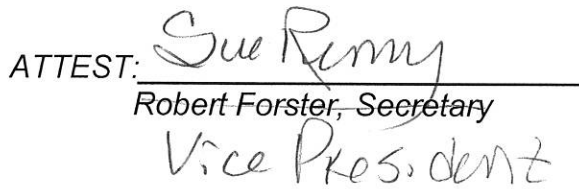 ATTEST: Sue Remy
Robert Forster, Secretary
Vice President